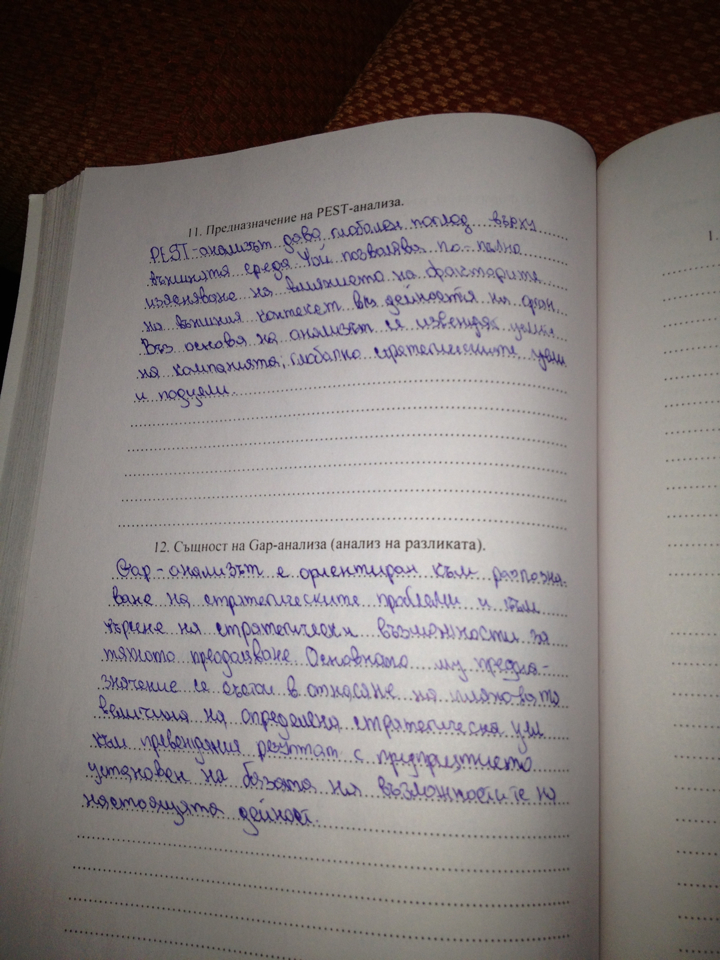 11. Предназначение на PEST-анализа.
PEST-анализът дава глобален поглед върху
външната среда. Той позволява по-пълно
изясняване на влиянието на факторите
на външния контекст въз дейността на
Въз основа на анализът се извеждат
на компанията, глобално стратегическите цели
и подцели.
12. Същност на Gap-анализа (анализ на разликата).
Gap-анализът е ориентиран към разпозна-
ване на стратегическите проблеми и към
търсене на стратегически възможности за
тяхното преодоляване. Основното му предна-
значение се състои в отнасяне на
величина на определена стратегическа цел
към резултат с предприятието
установен на базата на възможностите на
настоящата дейност.
1.